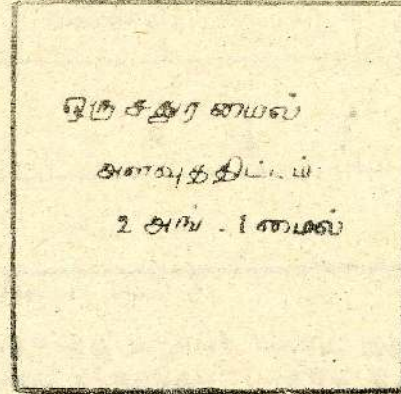 ஒரு சதுர மைல்
அளவுத்திட்டம்
2 அங் . 1 மைல்